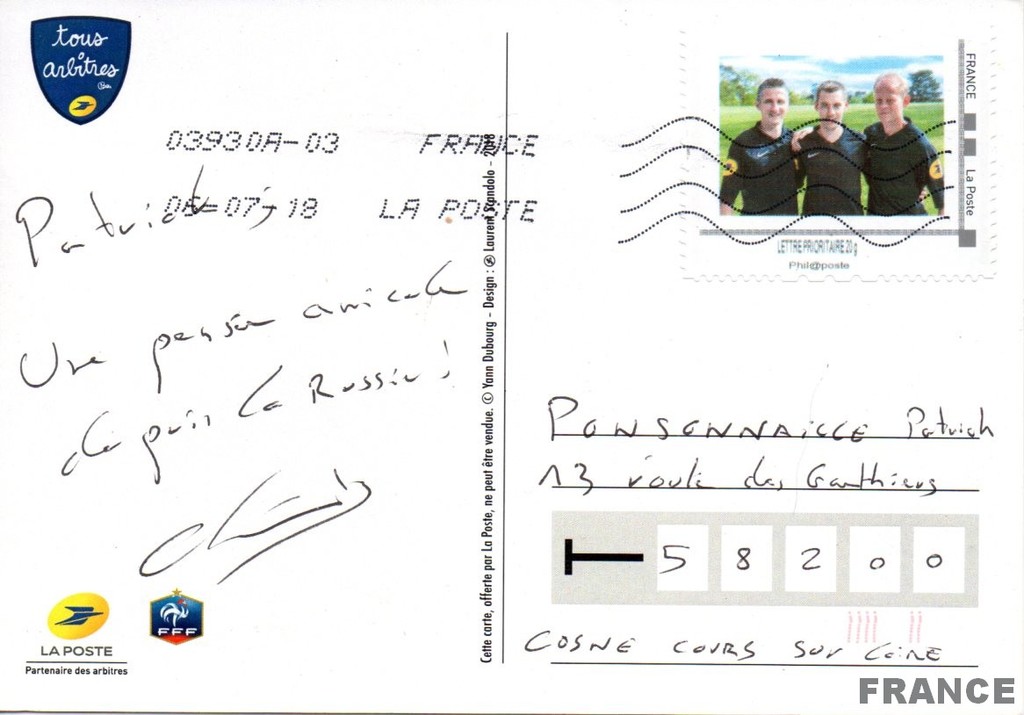 tous
arbitres
03930A-03 FRANCE
06-07-18 LA POSTE
Patrick,
Une pensée amicale
depuis la Russie !
LA POSTE
Partenaire des arbitres
FFF
Cette carte, offerte par La Poste, ne peut être vendue. © Yann Dubourg - Design : Laurent Scandolo - 2018
FRANCE
La Poste
LETTRE PRIORITAIRE 20g
Phil@poste
PONSONNAILLE Patrick
13 route des Gauthiers
58200
COSNE COURS SUR LOIRE
FRANCE